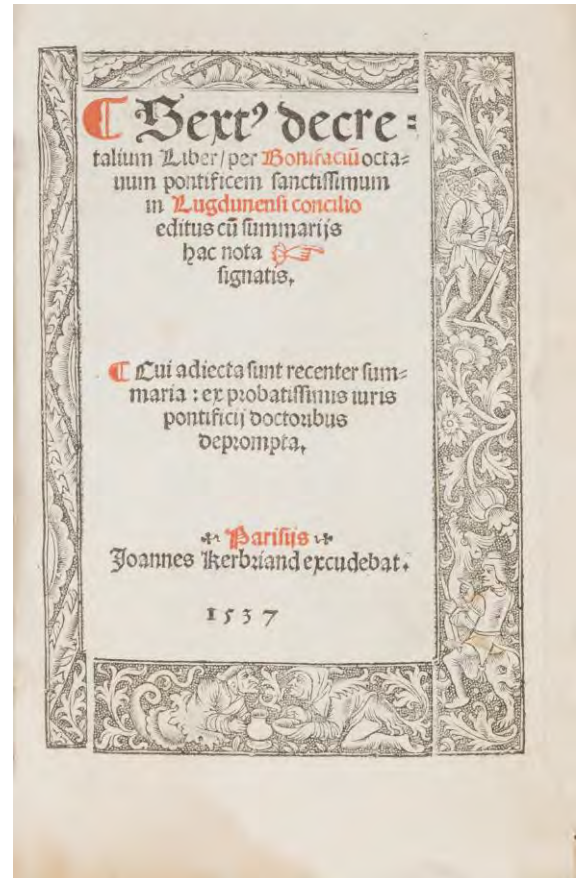 ¶ Sextꝰ decre=
talium Liber/per Bonifaciū octa=
uum pontificem sanctissimum
in Lugdunensi concilio
editus cū summarijs
hac nota ☞
signatis.
¶ Cui adiecta sunt recenter sum=
maria : ex probatissimis iuris
pontificij doctoribus
deprompta.
Parisijs
Joannes Kerbriand excudebat.
1537